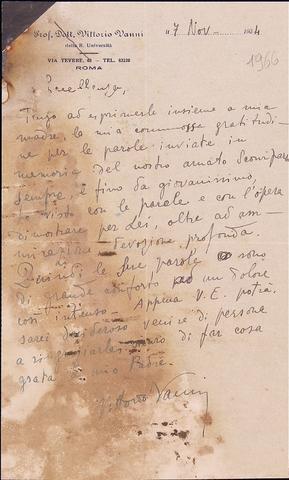 Prof. Dott. Vittorio Vanni
della R. Università
VIA TEVERE, 48 - TEL. 63238
ROMA
7 Nov 4
1966
Eccellenza,
Tengo ad esprimerle insieme a mia
madre, la mia commossa gratitudi-
ne per le parole inviate in
memoria del nostro amato scomparso
Sempre, e fino da giovanissimo,
ho visto con le parole e con l'opera
dimostrare per Lei, oltre ad am-
mirazione devozione profonda.
Quindi le Sue parole sono
di grande conforto ad un dolore
così intenso. Appena V. E. potrà
sarei desideroso venire di persona
a ringraziarla di far cosa
grata mio Padre.
Vittorio Vanni